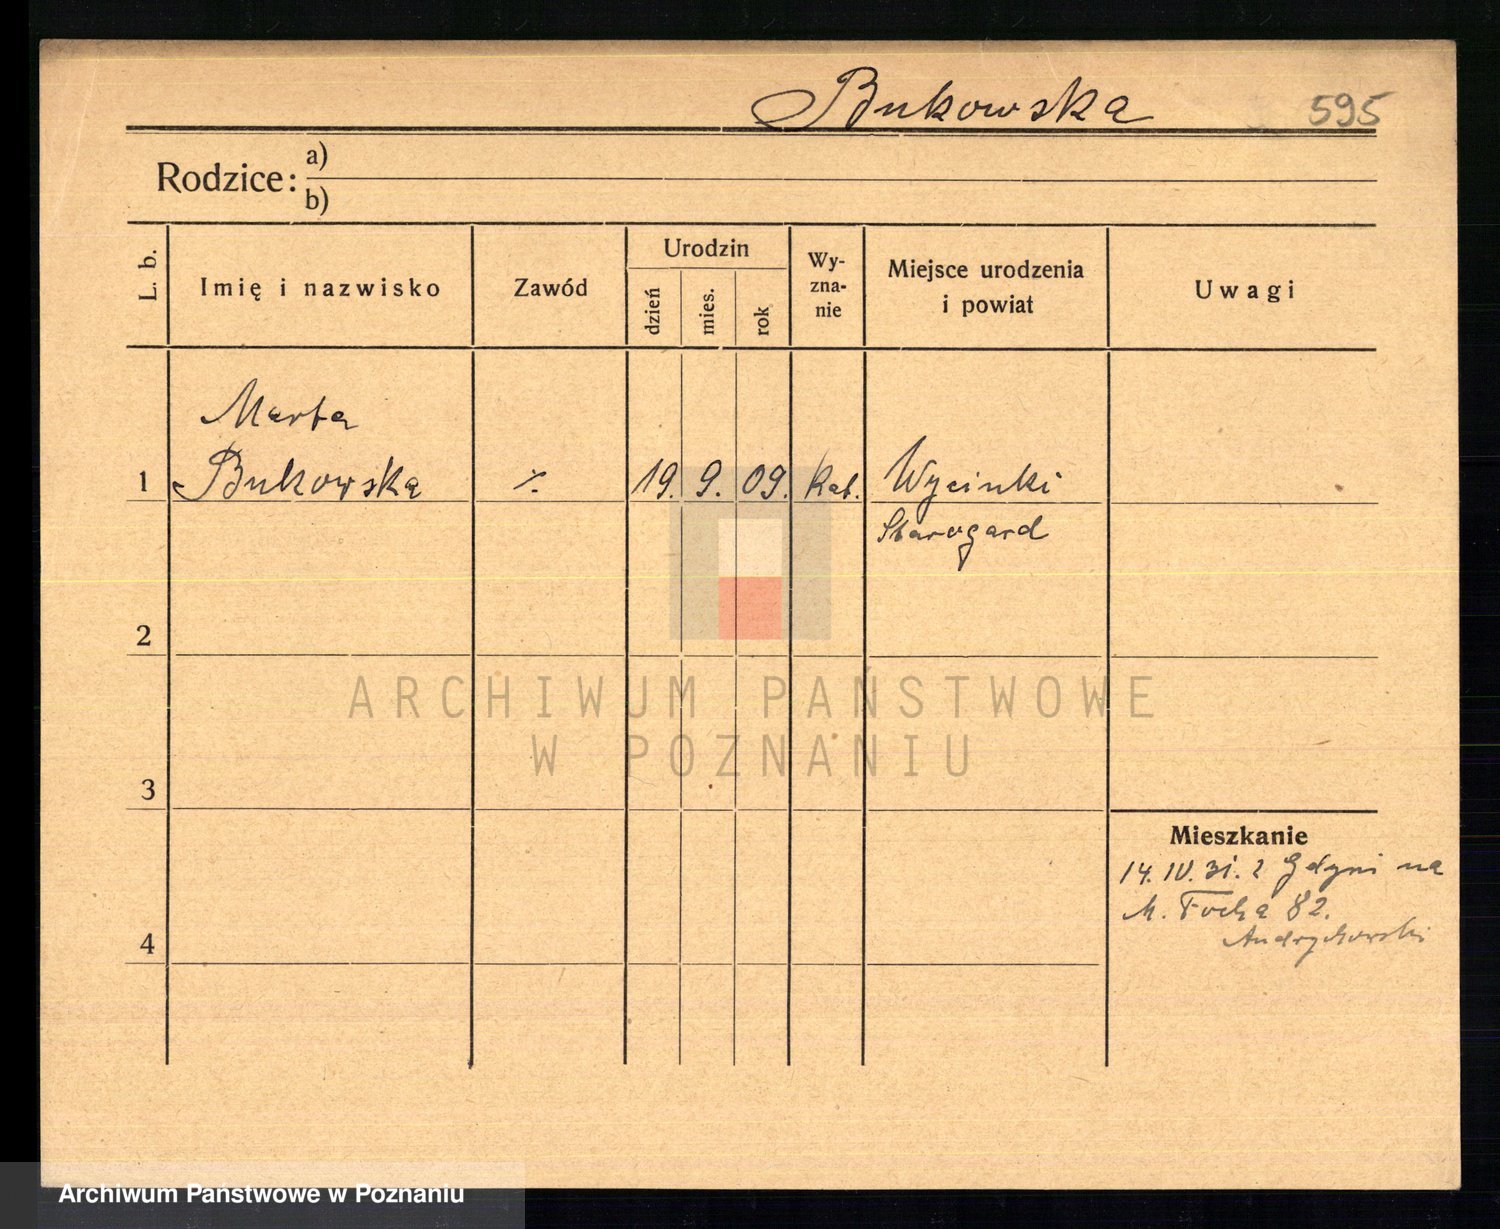 Bukowska 595
Rodzice: a)
b)
L. b.
Imię i nazwisko
Zawód
Urodzin
dzień
mies.
rok
Wy-
zna-
nie
Miejsce urodzenia
i powiat
Uwagi
Marta
1 Bukowska ٪ 19. 9. 09. kat. Wycinki
Starogard
2
3
4
Mieszkanie
14. IV. 31. z Gdyni na
M. Focha 82.
Andrychowski
ARCHIWUM PAŃSTWOWE
W POZNANIU
Archiwum Państwowe w Poznaniu